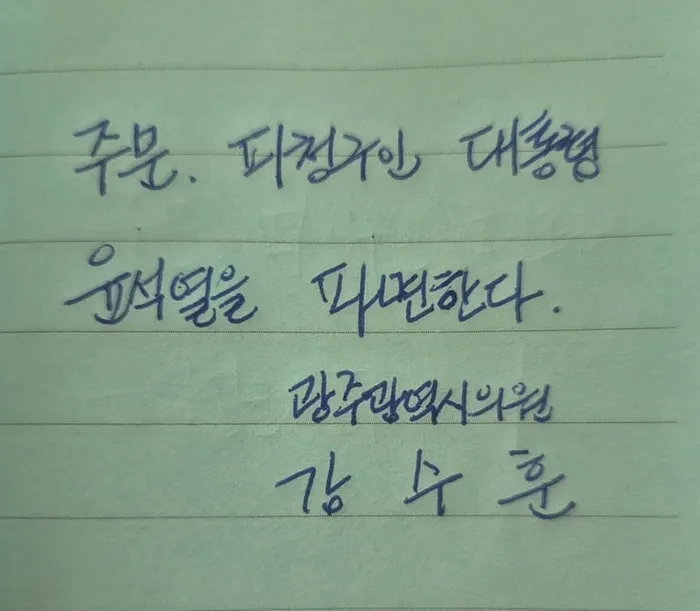 주문. 피청구인 대통령
윤석열을 파면한다.
광주광역시의원
강 수 훈